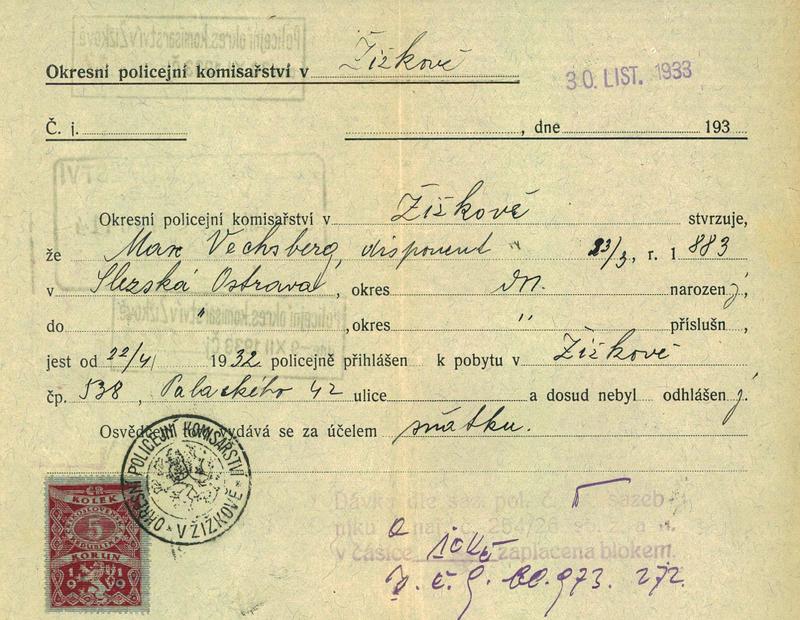 Okresní policejní komisařství v Žižkově
30. LIST. 1933
Č. j. , dne 193
Okresní policejní komisařství v Žižkově stvrzuje,
že Max Vechsberg, disponent 23/3, r. 1883
v Slezská Ostrava, okres narozen ý,
do " , okres " příslušn,
jest od 22/4 1932 policejně přihlášen k pobytu v Žižkově
čp. 538, Palackého 42 ulice a dosud nebyl odhlášen ý.
Osvědčení toto vydává se za účelem sňatku.
OKRESNÍ POLICEJNÍ KOMISAŘSTVÍ V ŽIŽKOVĚ
ČR
KOLEK
5
KORUN
Dávka dle saz. pol. sazeb
níku k nař. č. 254/26
v částce zaplacena blokem.